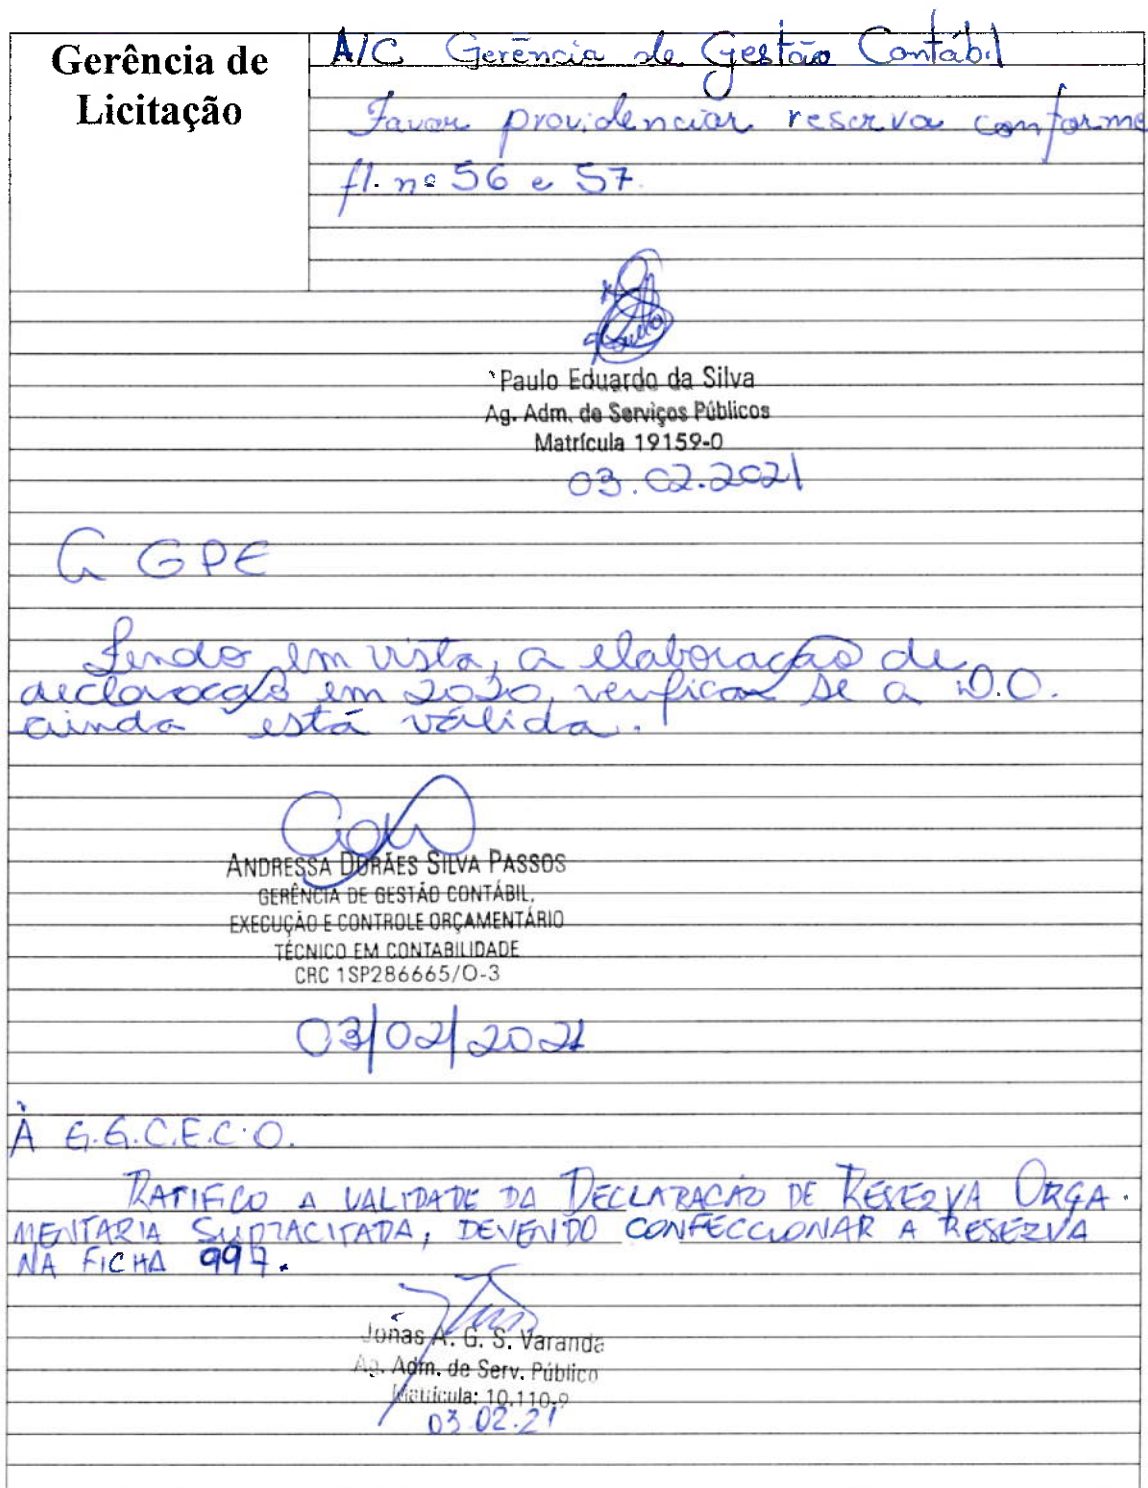 Gerência de
Licitação
A/C Gerência de Gestão Contábil
Favor providenciar reserva conforme
fl. nº 56 e 57.
Paulo Eduardo da Silva
Ag. Adm. de Serviços Públicos
Matrícula 19159-0
03.02.2021
À GPE
Tendo em vista, a elaboração de
declaração em 2020, verificar se a D.O.
ainda está válida.
ANDRESSA DURÃES SILVA PASSOS
GERÊNCIA DE GESTÃO CONTÁBIL,
EXECUÇÃO E CONTROLE ORÇAMENTÁRIO
TÉCNICO EM CONTABILIDADE
CRC 1SP286665/O-3
03/02/2021
À G.G.C.E.C.O.
RATIFICO A VALIDADE DA DECLARAÇÃO DE RESERVA ORÇA-
MENTARIA SUPRACITADA, DEVENDO CONFECCIONAR A RESERVA
NA FICHA 997.
Jonas A. G. S. Varanda
Ag. Adm. de Serv. Público
Matrícula: 10.110-9
03.02.21